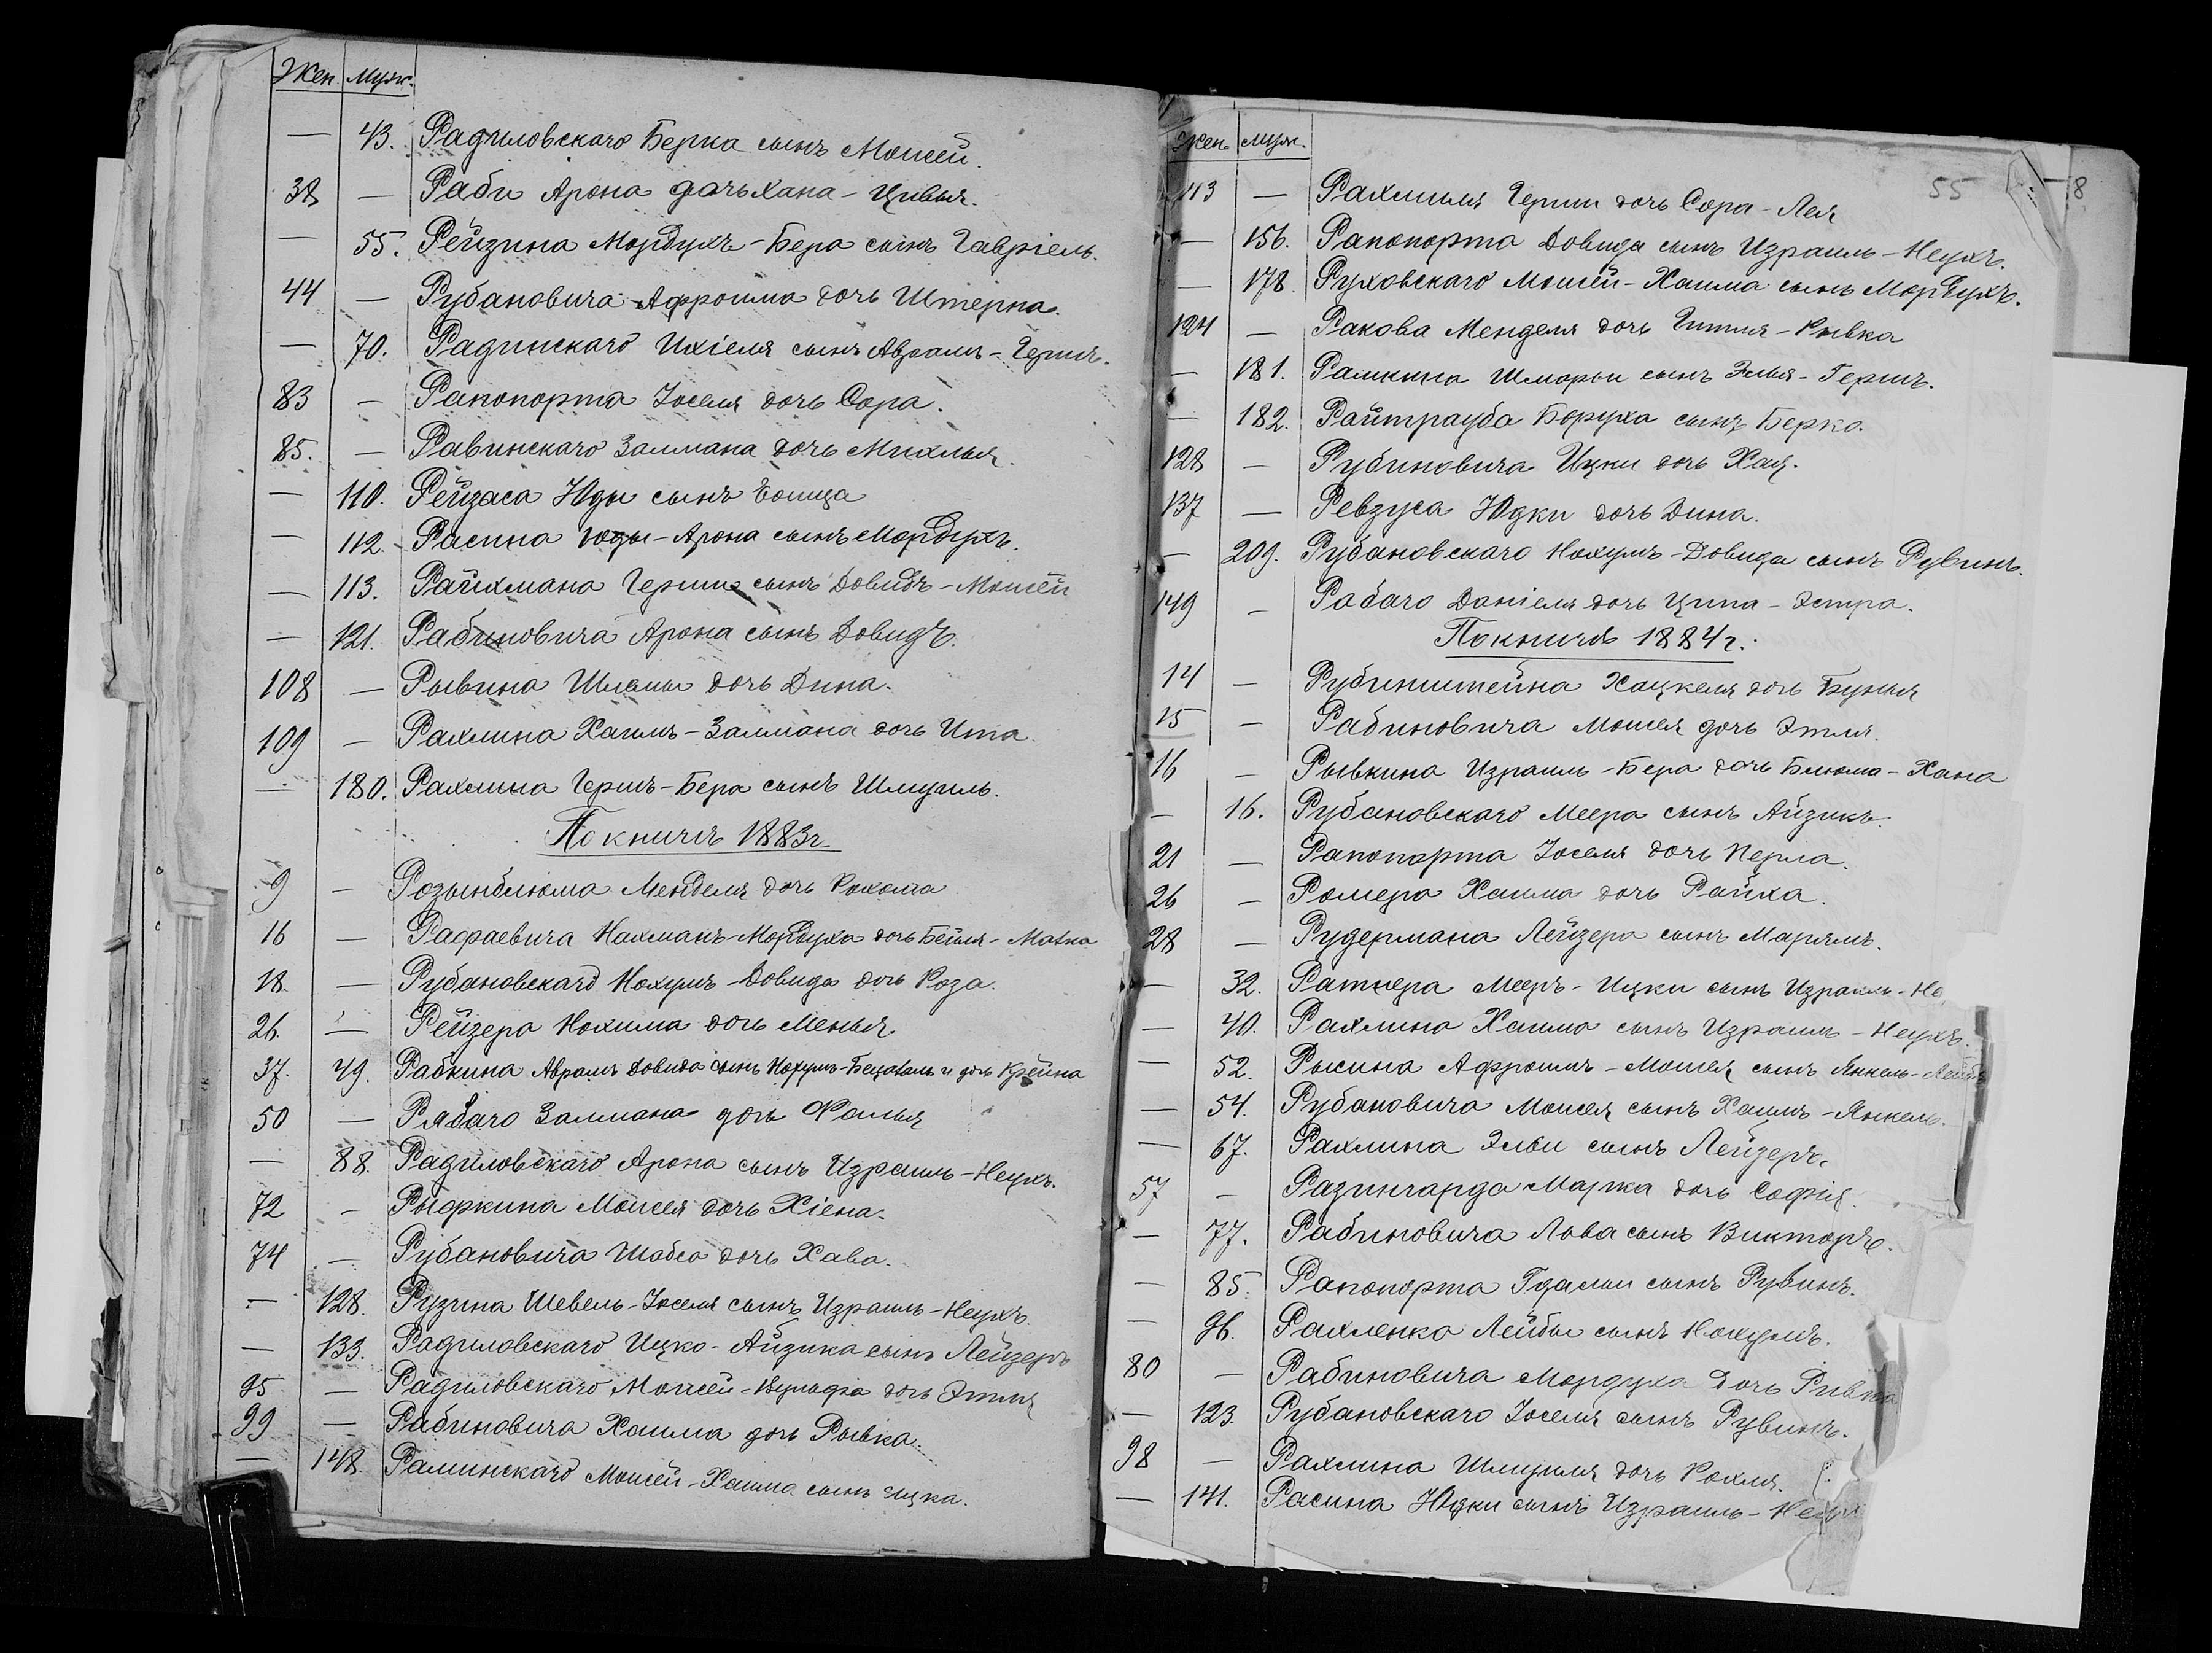 Жен. Муж.
— 43. Радиловскаго Берка сынъ Мовшей.
38 — Раби Арона дочь Хана-Цивья.
— 55. Рейзина Мордухъ-Бера сынъ Гавріель.
44 — Рубановича Афроима дочь Штерна.
— 70. Радинскаго Ихіеля сынъ Авраамъ-Гершъ.
83 — Рапопорта Іоселя дочь Сора.
85. — Равинскаго Залмана дочь Михлья.
— 110. Рейзаса Юды сынъ
— 112. Расина Юды-Арона сынъ Мордухъ.
— 113. Райхмана Герша сынъ Довидъ-Мовшей
— 121. Рабиновича Арона сынъ Довидъ.
108 — Рывина Шлемы дочь Дина.
109 — Рахлина Хаимъ-Залмана дочь Ита.
— 180. Рахлина Гершъ-Бера сынъ Шмуиль.
По книгѣ 1883 г.
9 — Розынблюма Менделя дочь Рохома
16 — Рафаевича Нахманъ-Мордуха дочь Бейля-Матка
18. — Рубановскаго Нохумъ-Довида дочь Роза.
26. — Рейзера Нохима дочь Менья.
37. 49. Рабкина Авраамъ Довида сынъ Нохумъ-Бецалель и дочь Крейна
50 — Рябаго Залмана дочь Фолья
— 88. Радиловскаго Арона сынъ Израиль-Неухъ.
72 — Рыфкина Мовшея дочь Хіена.
74 — Рубановича Шабса дочь Хава.
— 128. Рузина Шевель-Іоселя сынъ Израиль-Неухъ.
— 133. Радиловскаго Ицко-Айзика сынъ Лейзеръ
95 — Радиловскаго Мовшей-Вульфа дочь Этля
99 — Рабиновича Хаима дочь Рывка.
— 148. Раминскаго Мовшей-Хаима сынъ Ицка.
55 8
Жен. Муж.
113 — Рахлина Герши дочь Сора-Лея
— 156. Рапопорта Довида сынъ Израиль-Неухъ.
— 178. Руховскаго Мовшей-Хаима сынъ Мордухъ.
124 — Ракова Менделя дочь Гитля-Рывка
— 181. Рамкина Шмарьи сынъ Элья-Гершъ.
— 182. Райтрауба Боруха сынъ Берко.
128 — Рубиновича Ицки дочь Хая.
137 — Ревзуса Юдки дочь Дина.
— 209. Рубановскаго Нохумъ-Довида сынъ Рувинъ.
149 — Рабаго Даніеля дочь Ципа-Эстра.
По книгѣ 1884 г.
14 — Рубинштейна Хацкеля дочь Бунья
15 — Рабиновича Мовшея дочь Этля.
16 — Рывкина Израиль-Бера дочь Блюма-Хана
— 16. Рубановскаго Меера сынъ Айзикъ.
21 — Рапопорта Іоселя дочь Перла.
26 — Ромера Хаима дочь Райха.
28 — Рудермана Лейзера сынъ Марьямъ.
— 32. Ратнера Мееръ-Ицки сынъ Израиль-Не
— 40. Рахлина Хаима сынъ Израиль-Неухъ.
— 52. Рысина Афроимъ-Мовшея сынъ Янкель-Лейб
— 54. Рубановича Мовшея сынъ Хаимъ-Янкель.
— 67. Рахлина Эльи сынъ Лейзеръ.
57 — Разингарда Марка дочь Софія.
— 77. Рабиновича Лова сынъ Викторъ.
— 85. Рапопорта Гдальи сынъ Рувинъ.
— 96. Рахленко Лейбы сынъ Нохумъ.
80 — Рабиновича Мордуха дочь Ривка
— 123. Рубановскаго Іоселя сынъ Рувинъ.
98 — Рахлина Шмуиля дочь Рохля.
— 141. Расина Юдки сынъ Израиль-Неух